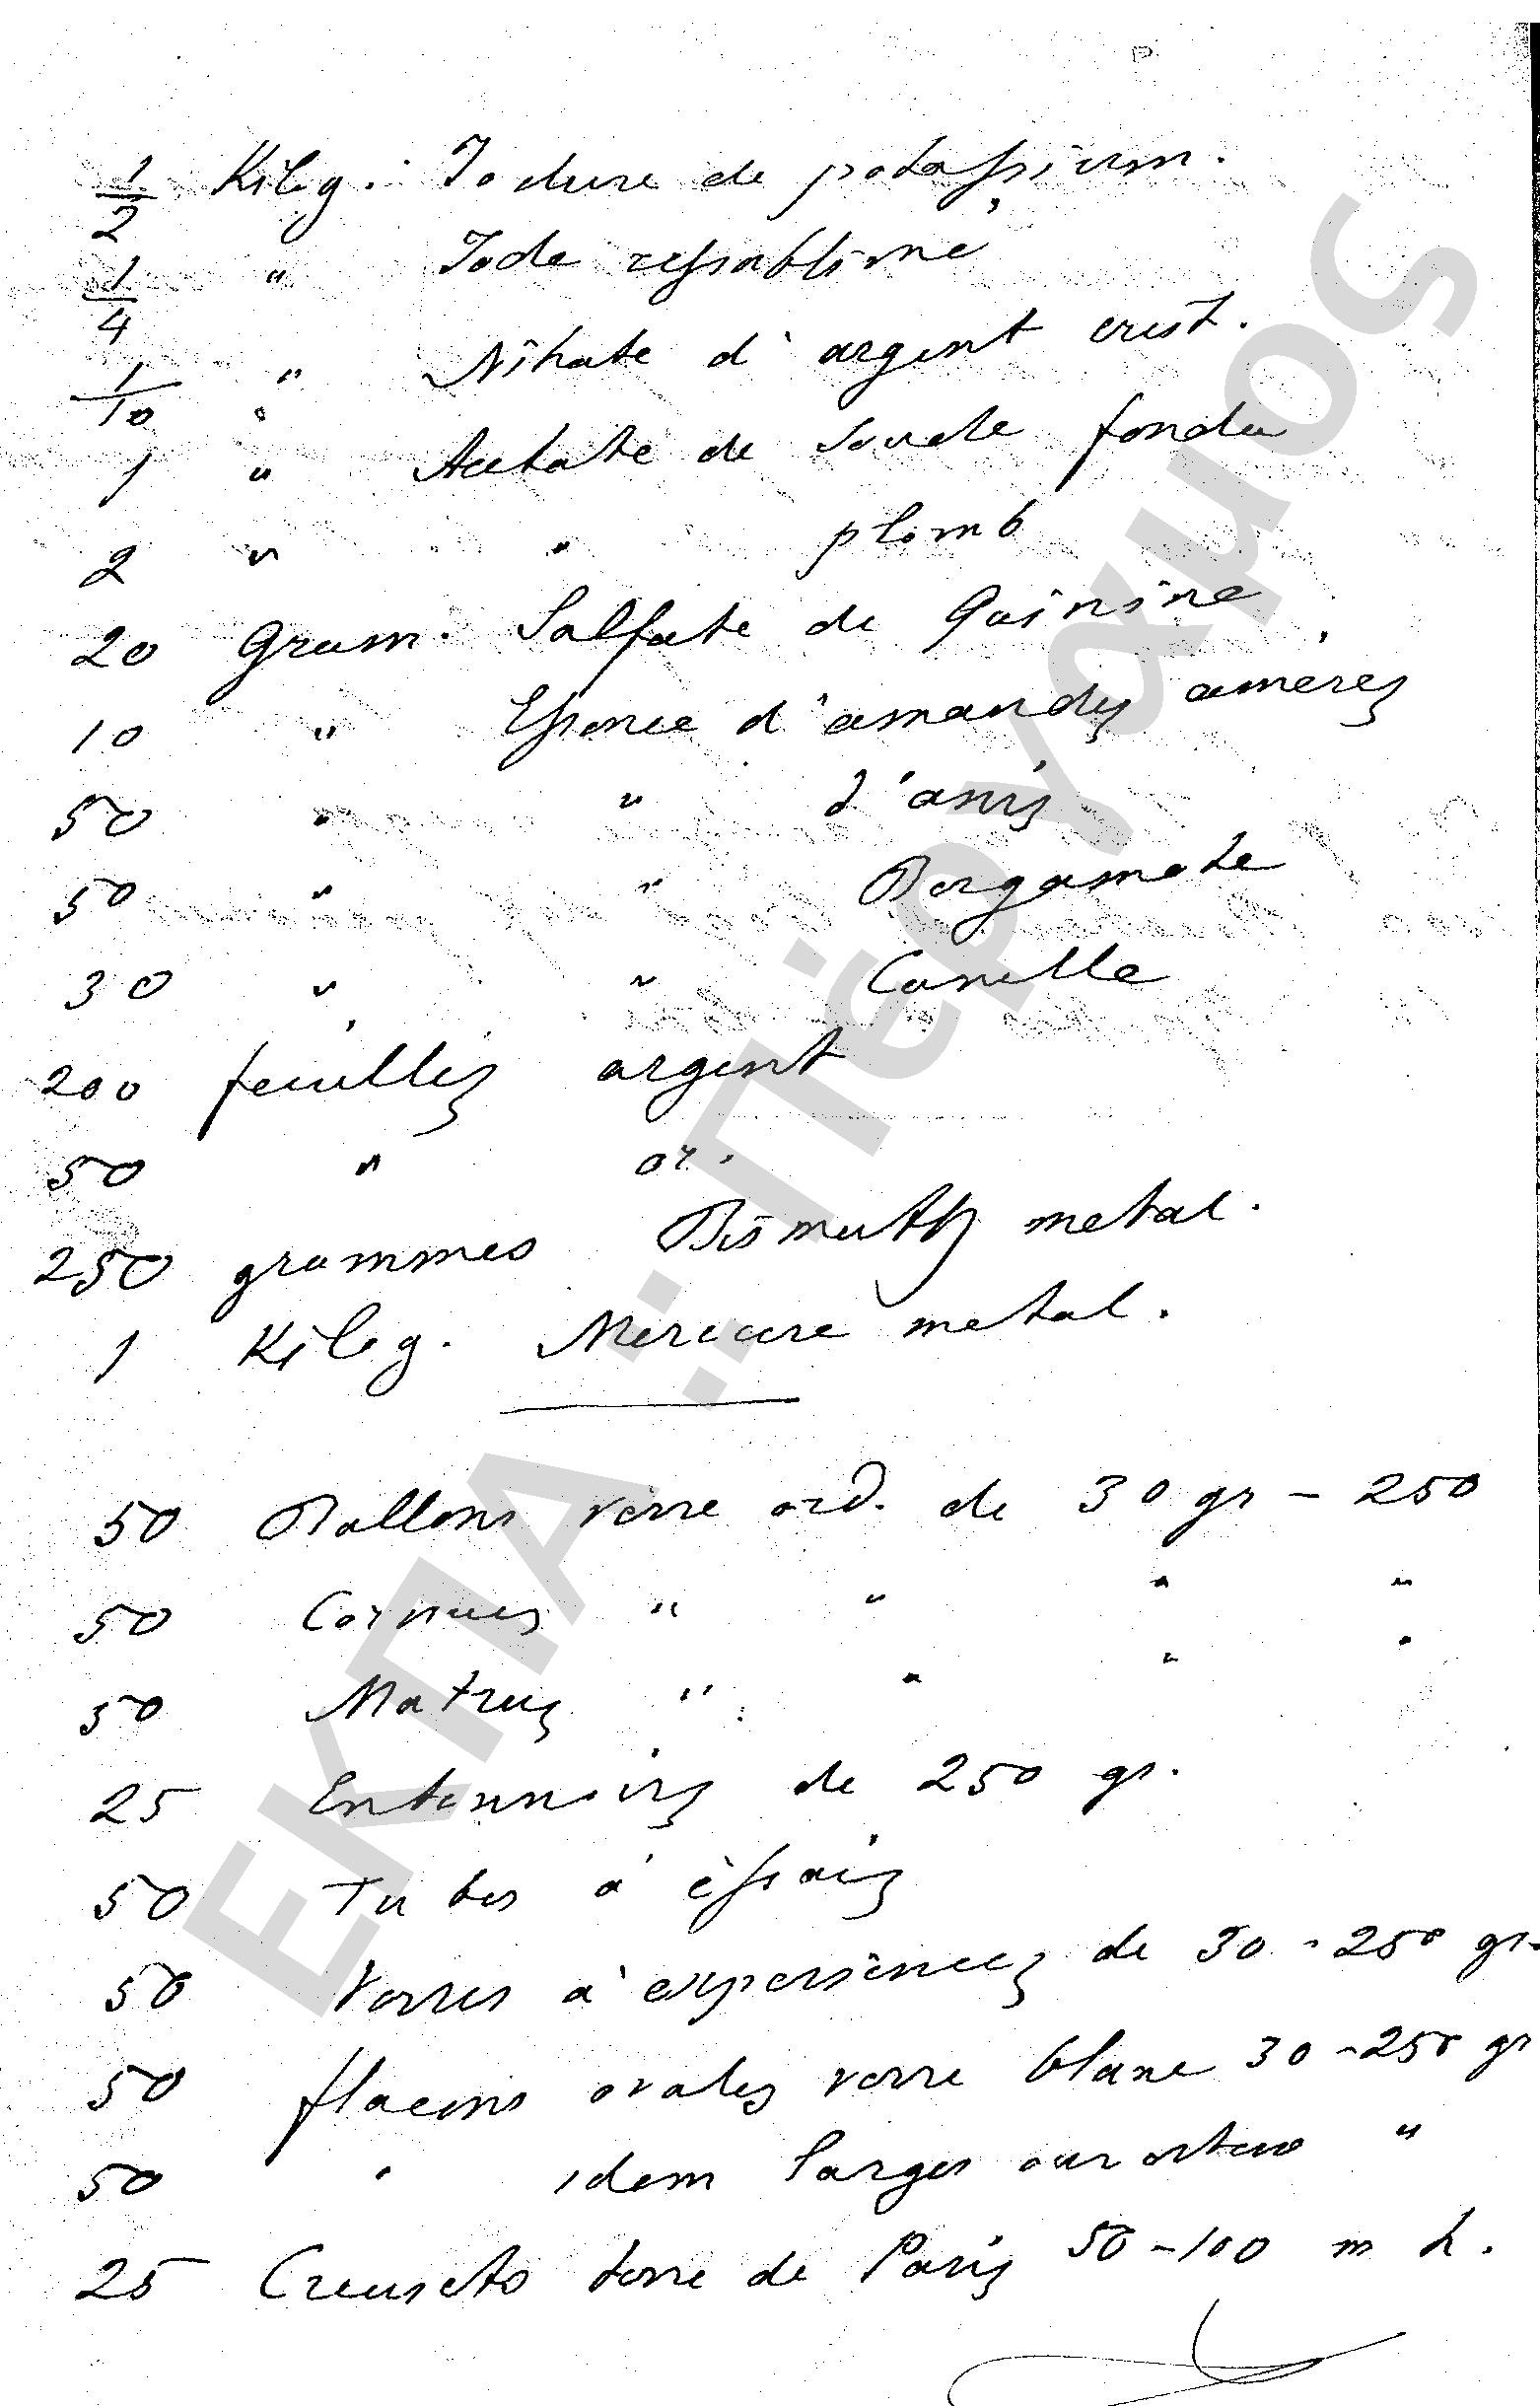 1/2 Kilog. Jodure de potassium.
1/4 " Jode ressublimé
1/10 " Nitrate d'argent crist.
1 " Acetate de soude fondu
2 " " plomb
20 Gram. Sulfate de Quinine
10 " Essence d'amandes amères
50 " " d'anis
50 " " Bergamote
30 " " Canelle
200 feuilles argent
50 " or.
250 grammes Bismuth metal.
1 Kilog. Mercure metal.
50 Ballons verre ord. de 30 gr - 250
50 Cornues " " " "
50 Matras " " " "
25 Entonnoirs de 250 gr.
50 Tubes à essais
50 Verres à experiences de 30 - 250 gr.
50 flacons ovales verre blanc 30 - 250 gr
50 " idem larges "
25 Creusets terre de Paris 50 - 100 m h.
ΕΚΠΑ :: Πέργαμος